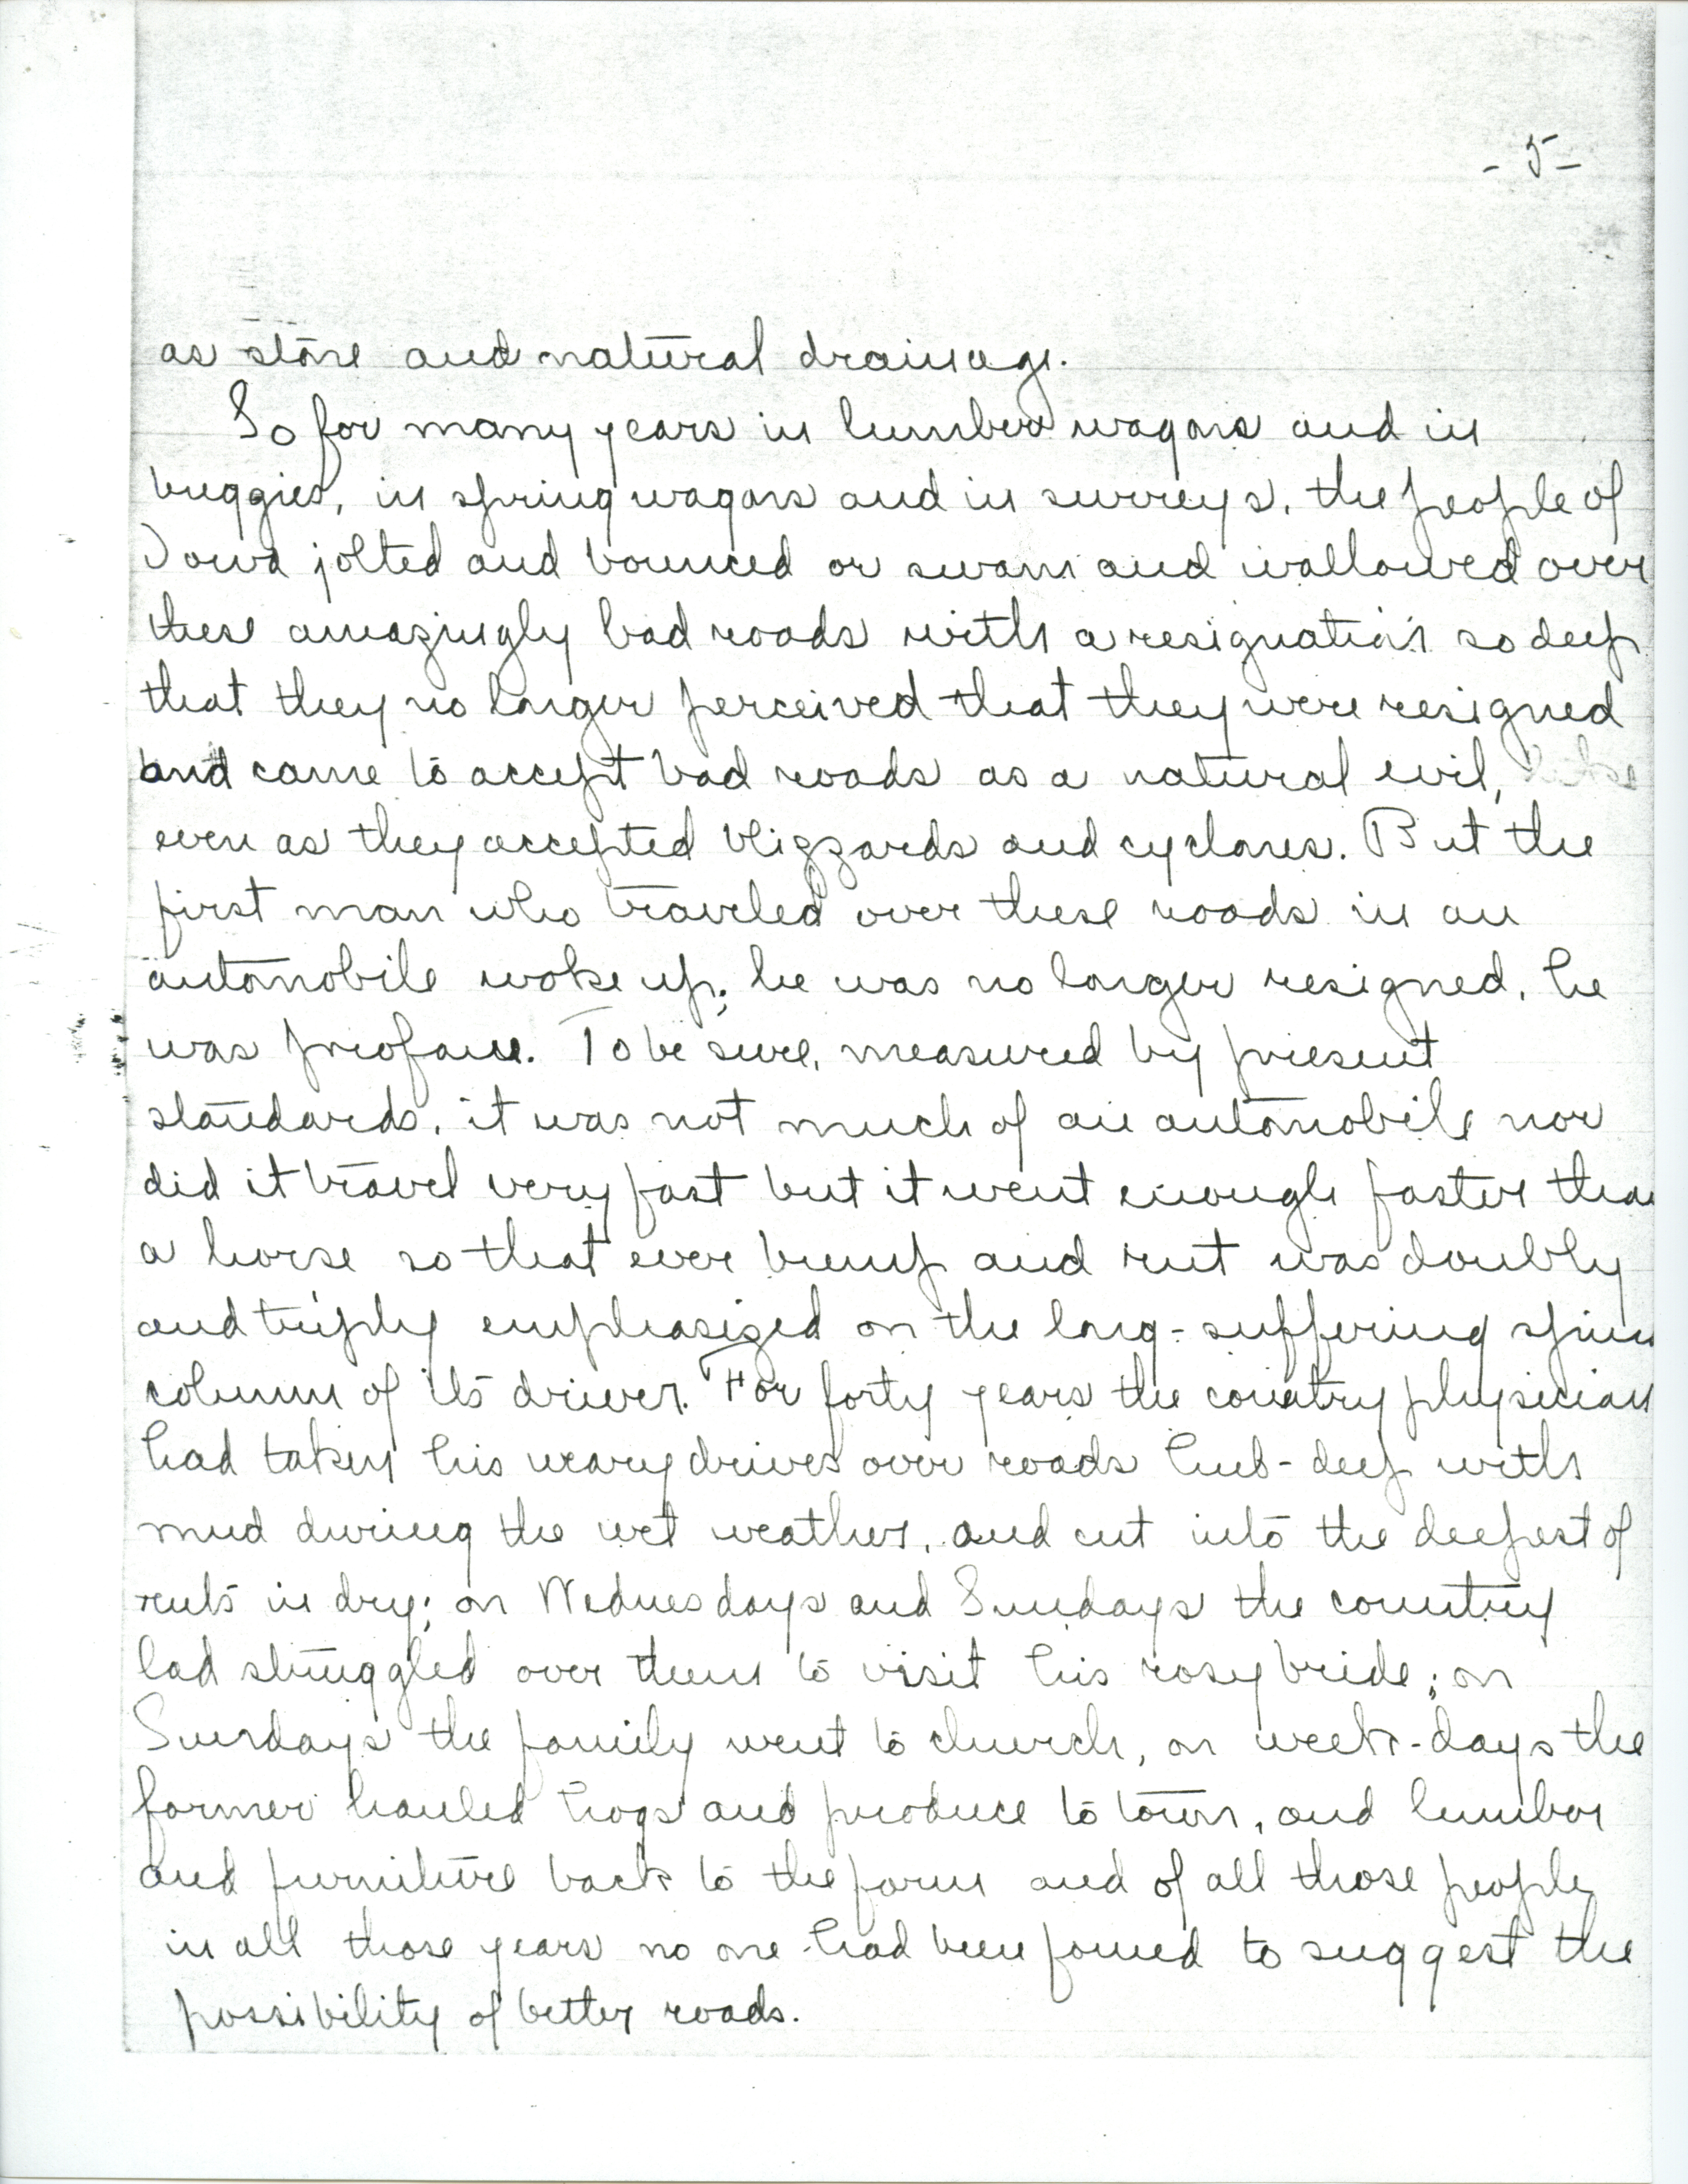 - 5 -
as stone and natural drainage.
So for many years in lumber wagons and in
buggies, in spring wagons and in surreys, the people of
Iowa jolted and bounced or swam and wallowed over
these amazingly bad roads with a resignation so deep
that they no longer perceived that they were resigned
and came to accept bad roads as a natural evil,
even as they accepted blizzards and cyclones. But the
first man who traveled over these roads in an
automobile woke up; he was no longer resigned, he
was profane. To be sure, measured by present
standards, it was not much of an automobile nor
did it travel very fast but it went enough faster than
a horse so that ever bump and rut was doubly
and triply emphasized on the long-suffering
column of its driver. For forty years the country physician
had taken his weary drives over roads hub-deep with
mud during the wet weather, and cut into the deepest of
ruts in dry; on Wednesdays and Sundays the country
lad struggled over them to visit his rosy bride; on
Sundays the family went to church, on week-days the
farmer hauled hogs and produce to town, and lumber
and furniture back to the farm and of all those people
in all those years no one had been found to suggest the
possibility of better roads.